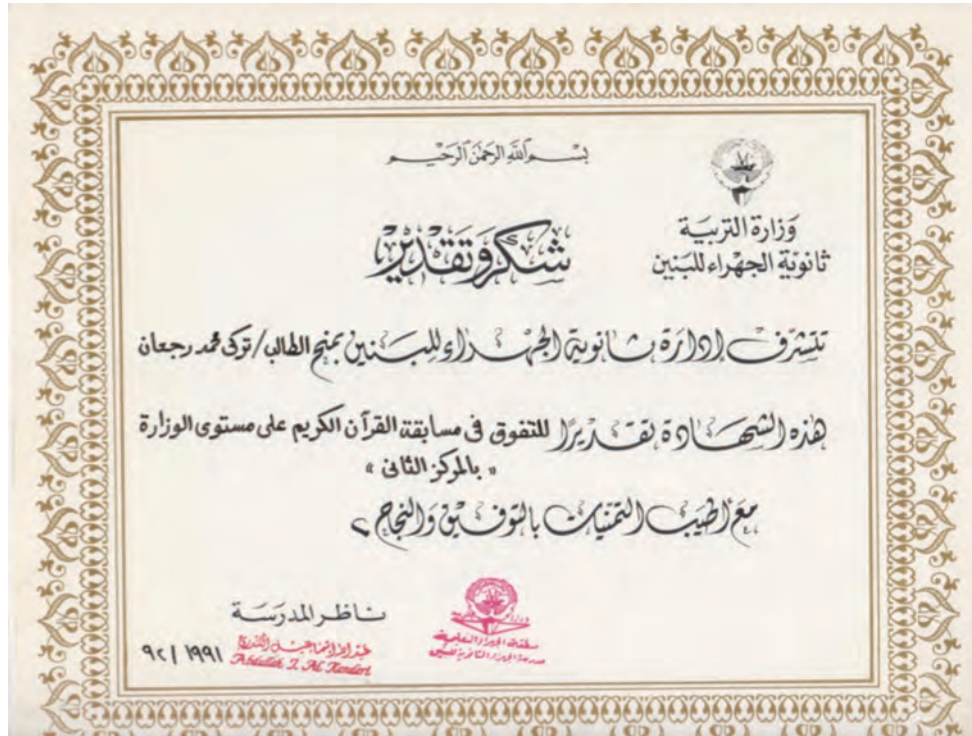 بسم الله الرحمن الرحيم
وزارة التربية
ثانوية الجهراء للبنين
شكر وتقدير
تتشرف إدارة ثانوية الجهراء للبنين بمنح الطالب / تركى محمد رجعان
هذه الشهادة تقديرًا للتفوق فى مسابقة القرآن الكريم على مستوى الوزارة
« بالمركز الثانى »
مع أطيب التمنيات بالتوفيق والنجاح ،
ناظر المدرسة
Abdullah I. Al Kandari
٩٢/ ١٩٩١
منطقة الجهراء التعليمية
مدرسة الجهراء الثانوية للبنين